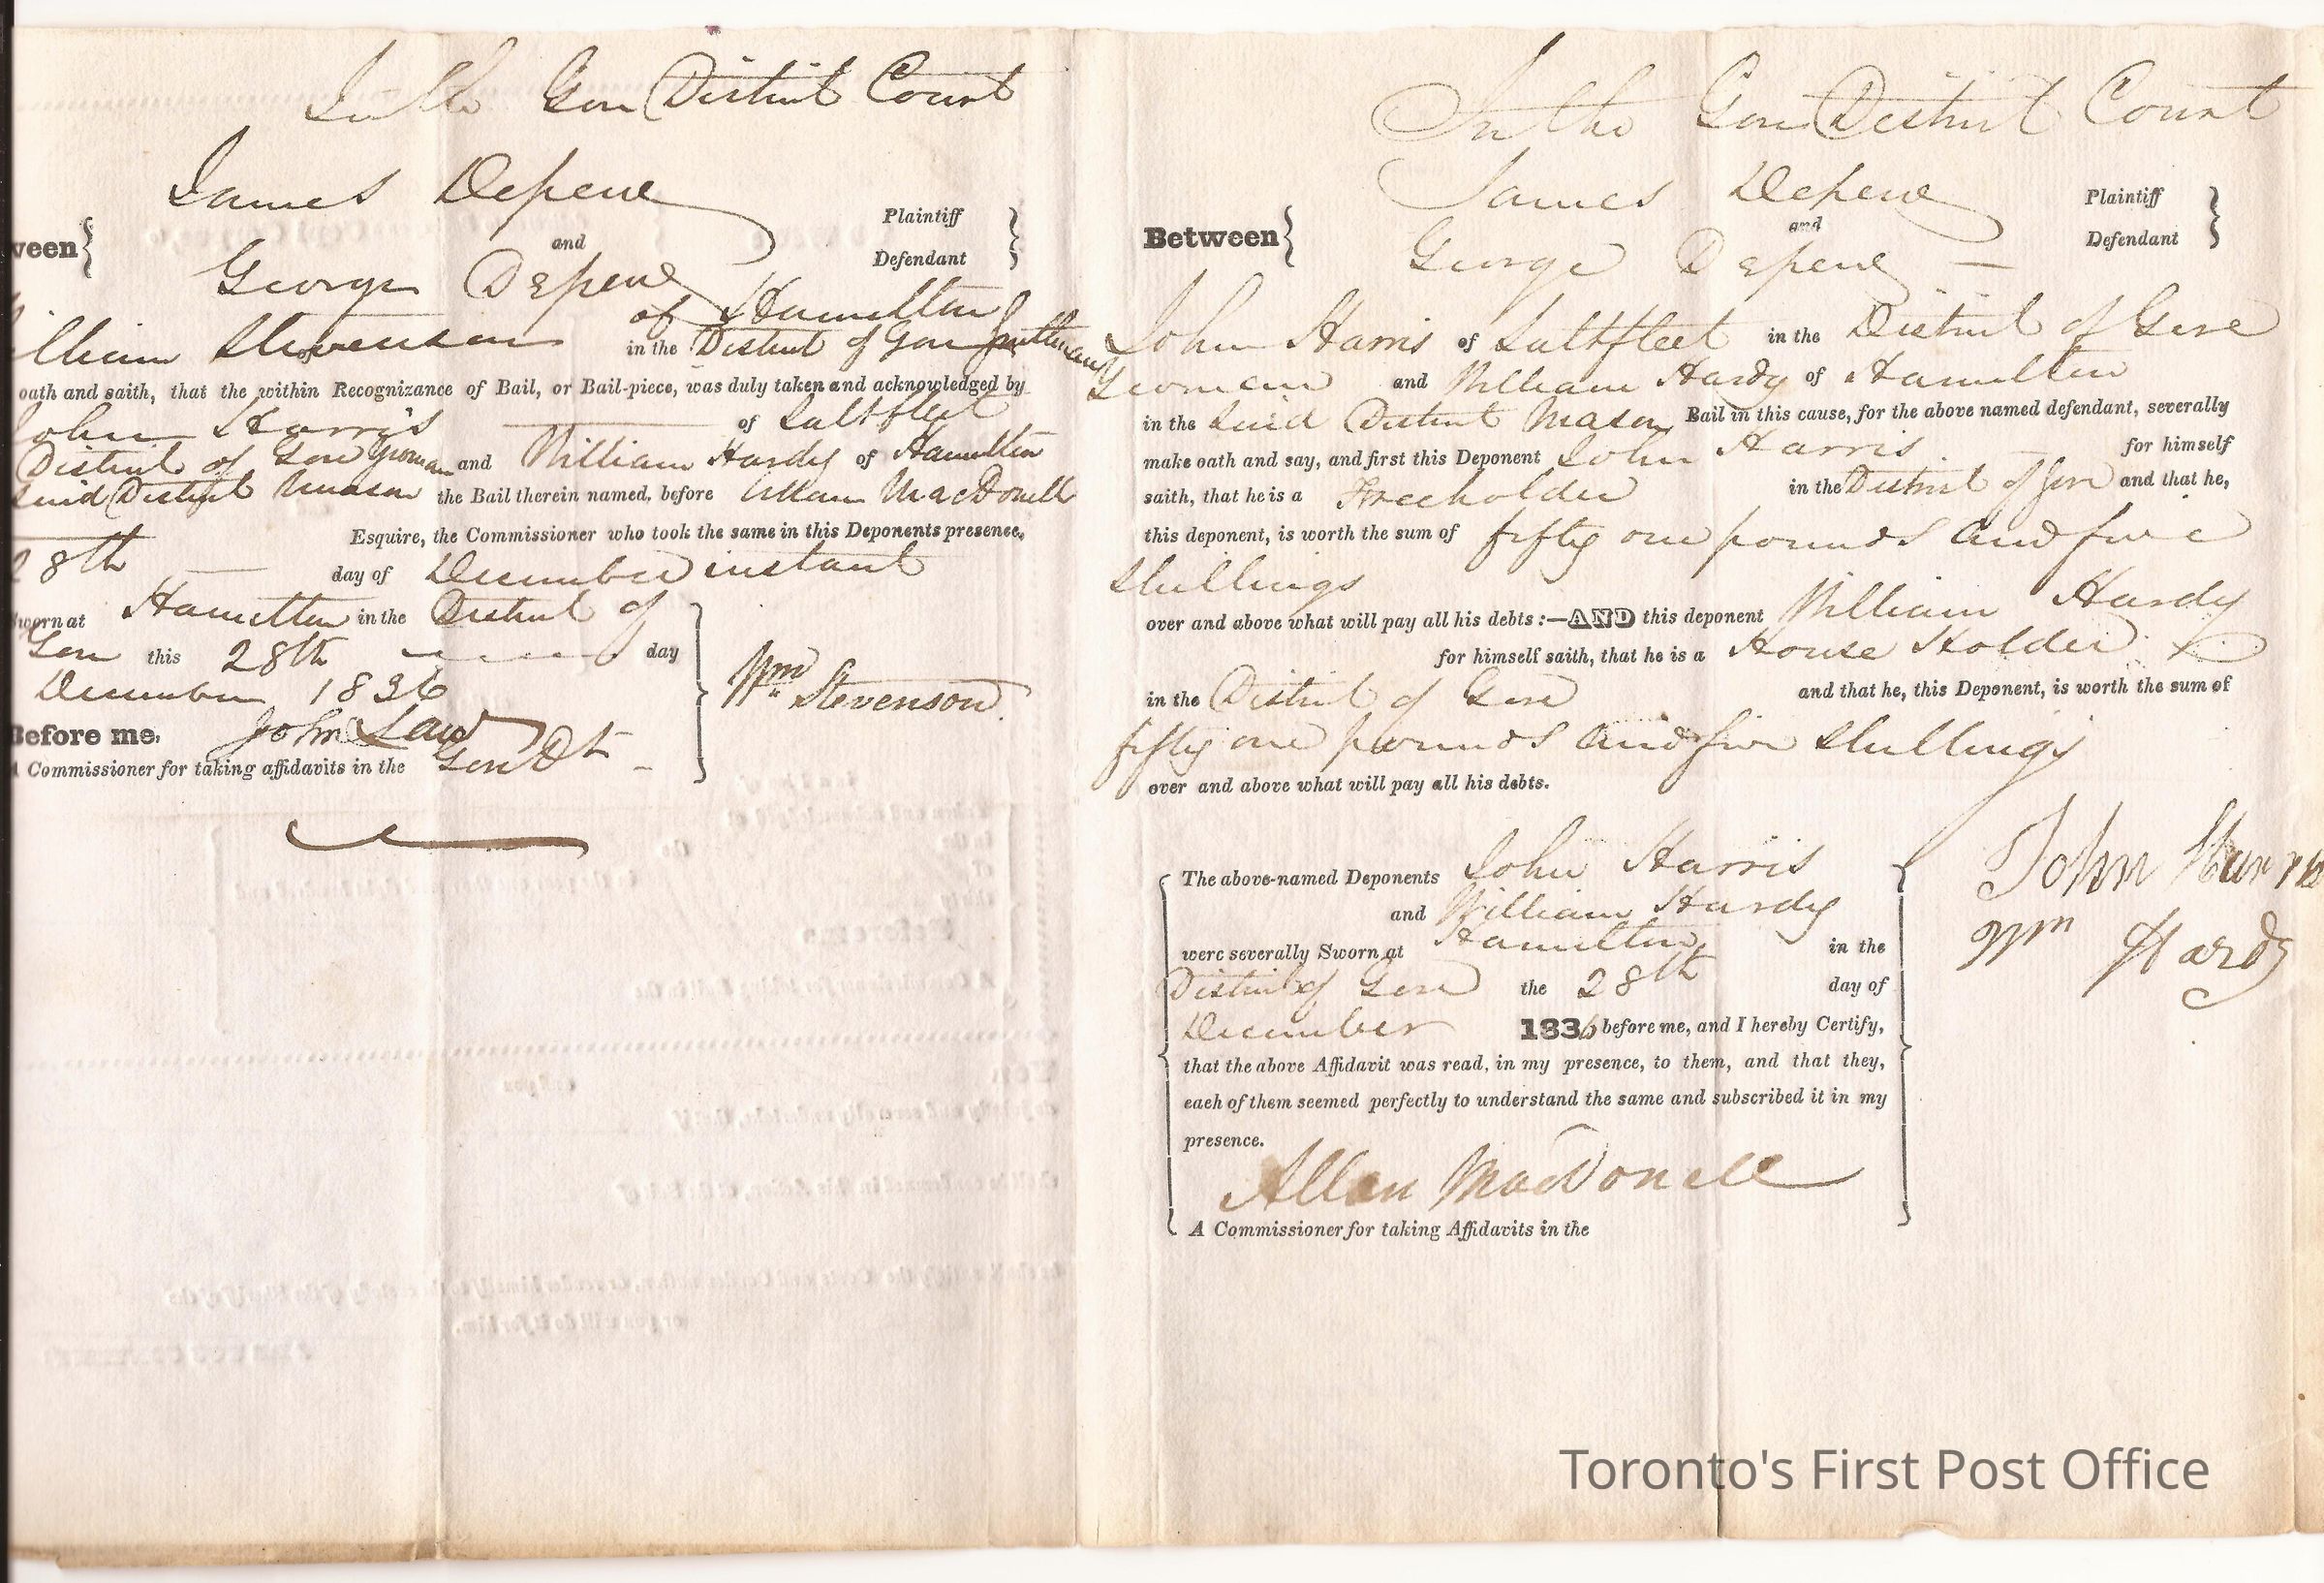 In the Gore District Court
James Depene
Plaintiff
and
Defendant
ween
George Depene
of Hamilton
illiam Stevenson in the District of Gore Gentleman
oath and saith, that the within Recognizance of Bail, or Bail-piece, was duly taken and acknowledged by
John Harris of Saltfleet
District of Gore Yeoman and William Hardy of Hamilton
said District Mason the Bail therein named, before Allan MacDonell
Esquire, the Commissioner who took the same in this Deponents presence,
28th day of December instant
Sworn at Hamilton in the District of
Gore this 28th day
December 1836
Wm Stevenson
Before me, John Law
A Commissioner for taking affidavits in the Gore Dt
In the Gore District Court
James Depene
Plaintiff
and
Between
Defendant
George Depene
John Harris of Saltfleet in the District of Gore
Yeoman and William Hardy of Hamilton
in the said District Mason Bail in this cause, for the above named defendant, severally
make oath and say, and first this Deponent John Harris for himself
saith, that he is a Freeholder in the District of Gore and that he,
this deponent, is worth the sum of fifty one pounds and five
shillings
over and above what will pay all his debts:—AND this deponent William Hardy
for himself saith, that he is a House Holder
in the District of Gore and that he, this Deponent, is worth the sum of
fifty one pounds and five shillings
over and above what will pay all his debts.
The above-named Deponents John Harris
and William Hardy
were severally Sworn at Hamilton in the
District of Gore the 28th day of
December 1836 before me, and I hereby Certify,
that the above Affidavit was read, in my presence, to them, and that they,
each of them seemed perfectly to understand the same and subscribed it in my
presence.
Allan MacDonell
A Commissioner for taking Affidavits in the
John Harris
Wm Hardy
Toronto's First Post Office